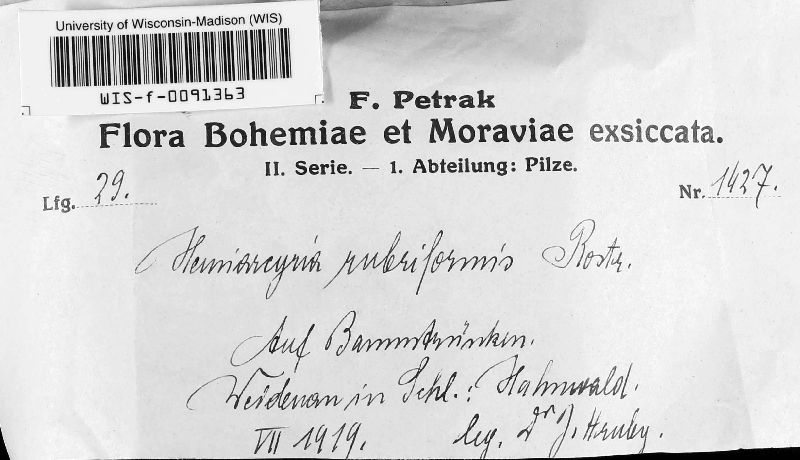 University of Wisconsin-Madison (WIS)
WIS-f-0091363
F. Petrak
Flora Bohemiae et Moraviae exsiccata.
II. Serie. — 1. Abteilung: Pilze.
Lfg. 29.
Nr. 1427.
Hemiarcyria rubriformis Rostr.
Auf Baumstrünken.
Weidenau in Schl.: Hahnwald.
VII 1919. leg. Dr J. Hruby.